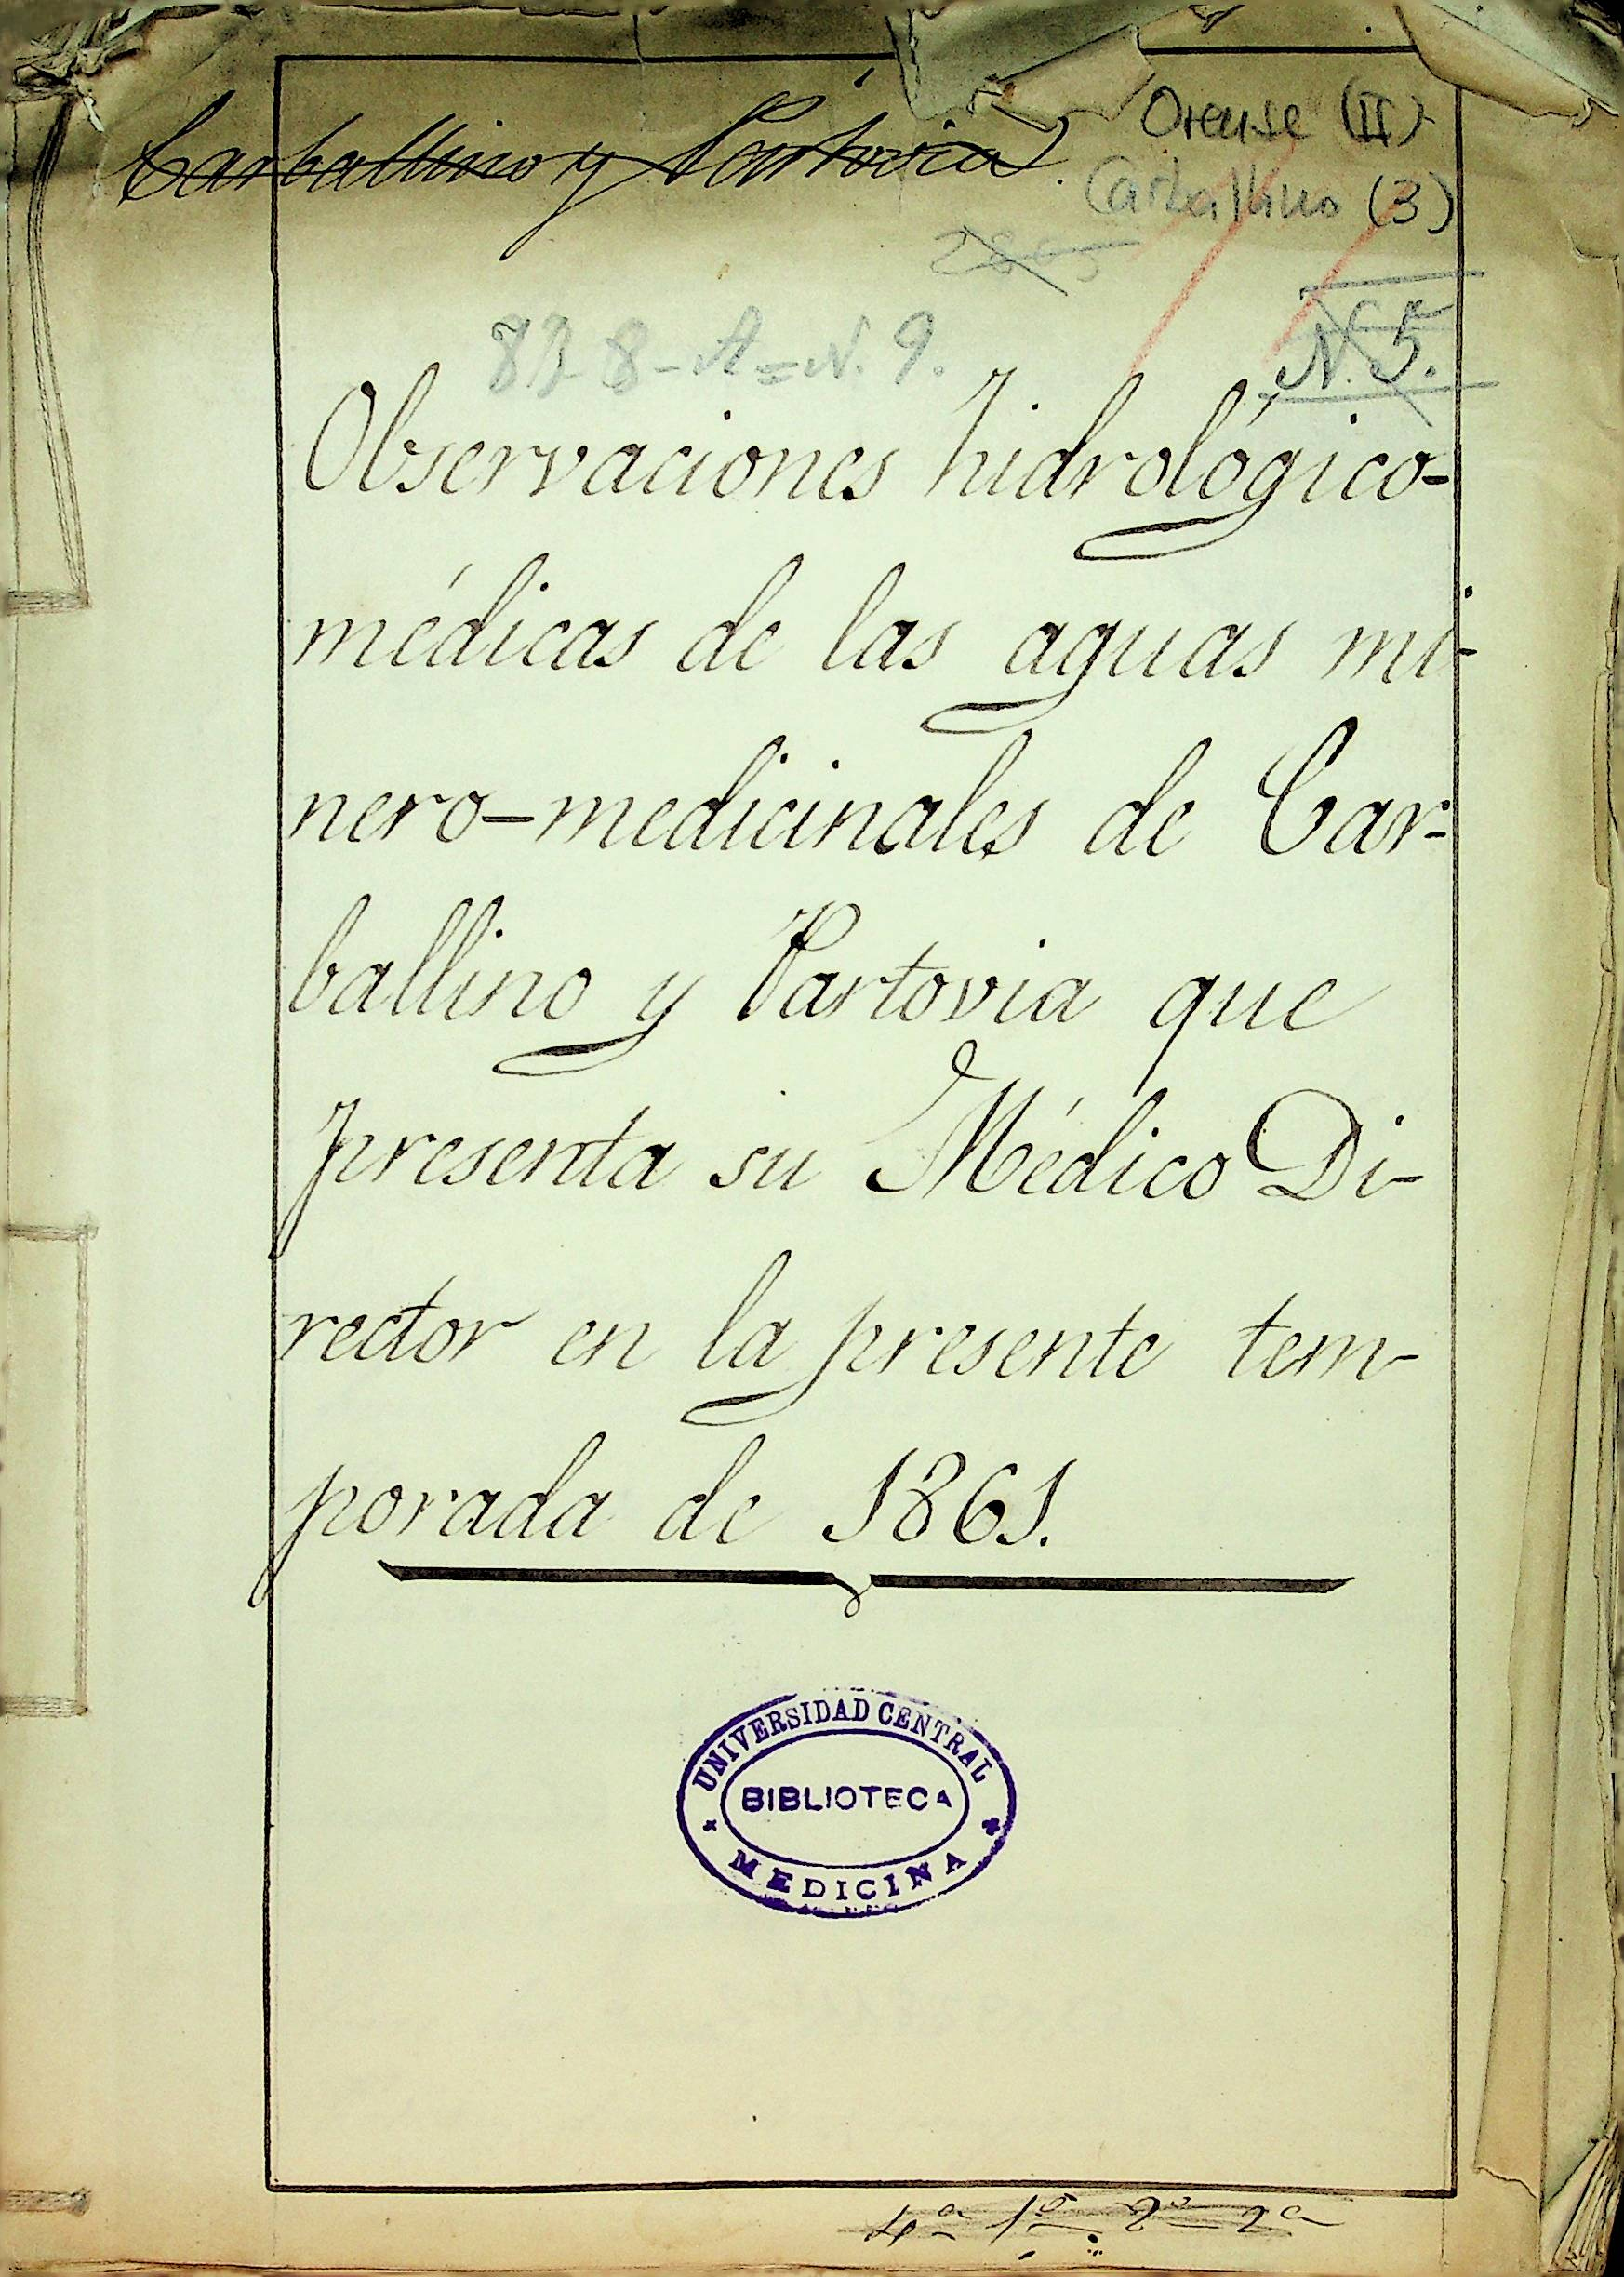 Carballino y Partovia.
Orense (II)
Carballino (3)
83-8-A=N. 9.
N. 5.
Observaciones hidrológico-
médicas de las aguas mi-
nero-medicinales de Car-
ballino y Partovia que
presenta su Médico Di-
rector en la presente tem-
porada de 1861.
UNIVERSIDAD CENTRAL
BIBLIOTECA
MEDICINA
4ª 1º 2º 2ª